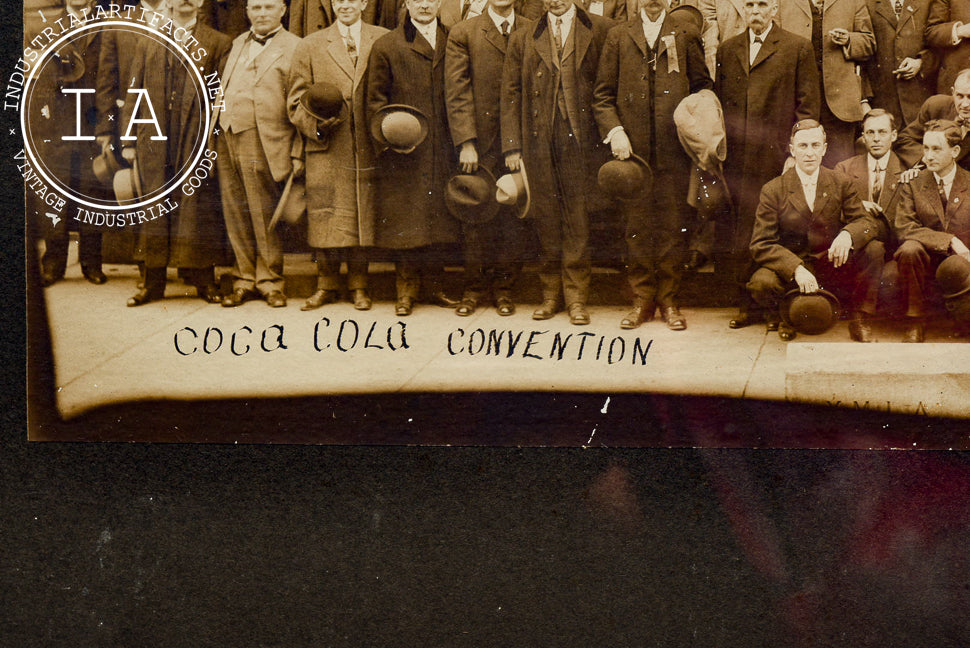 INDUSTRIALARTIFACTS.NET
IA
VINTAGE INDUSTRIAL GOODS
COCA COLA CONVENTION